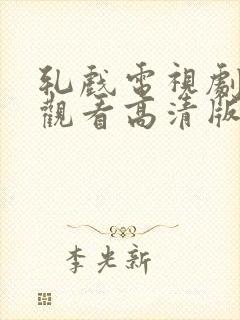 乳戲電視劇
觀看高清版
李光新